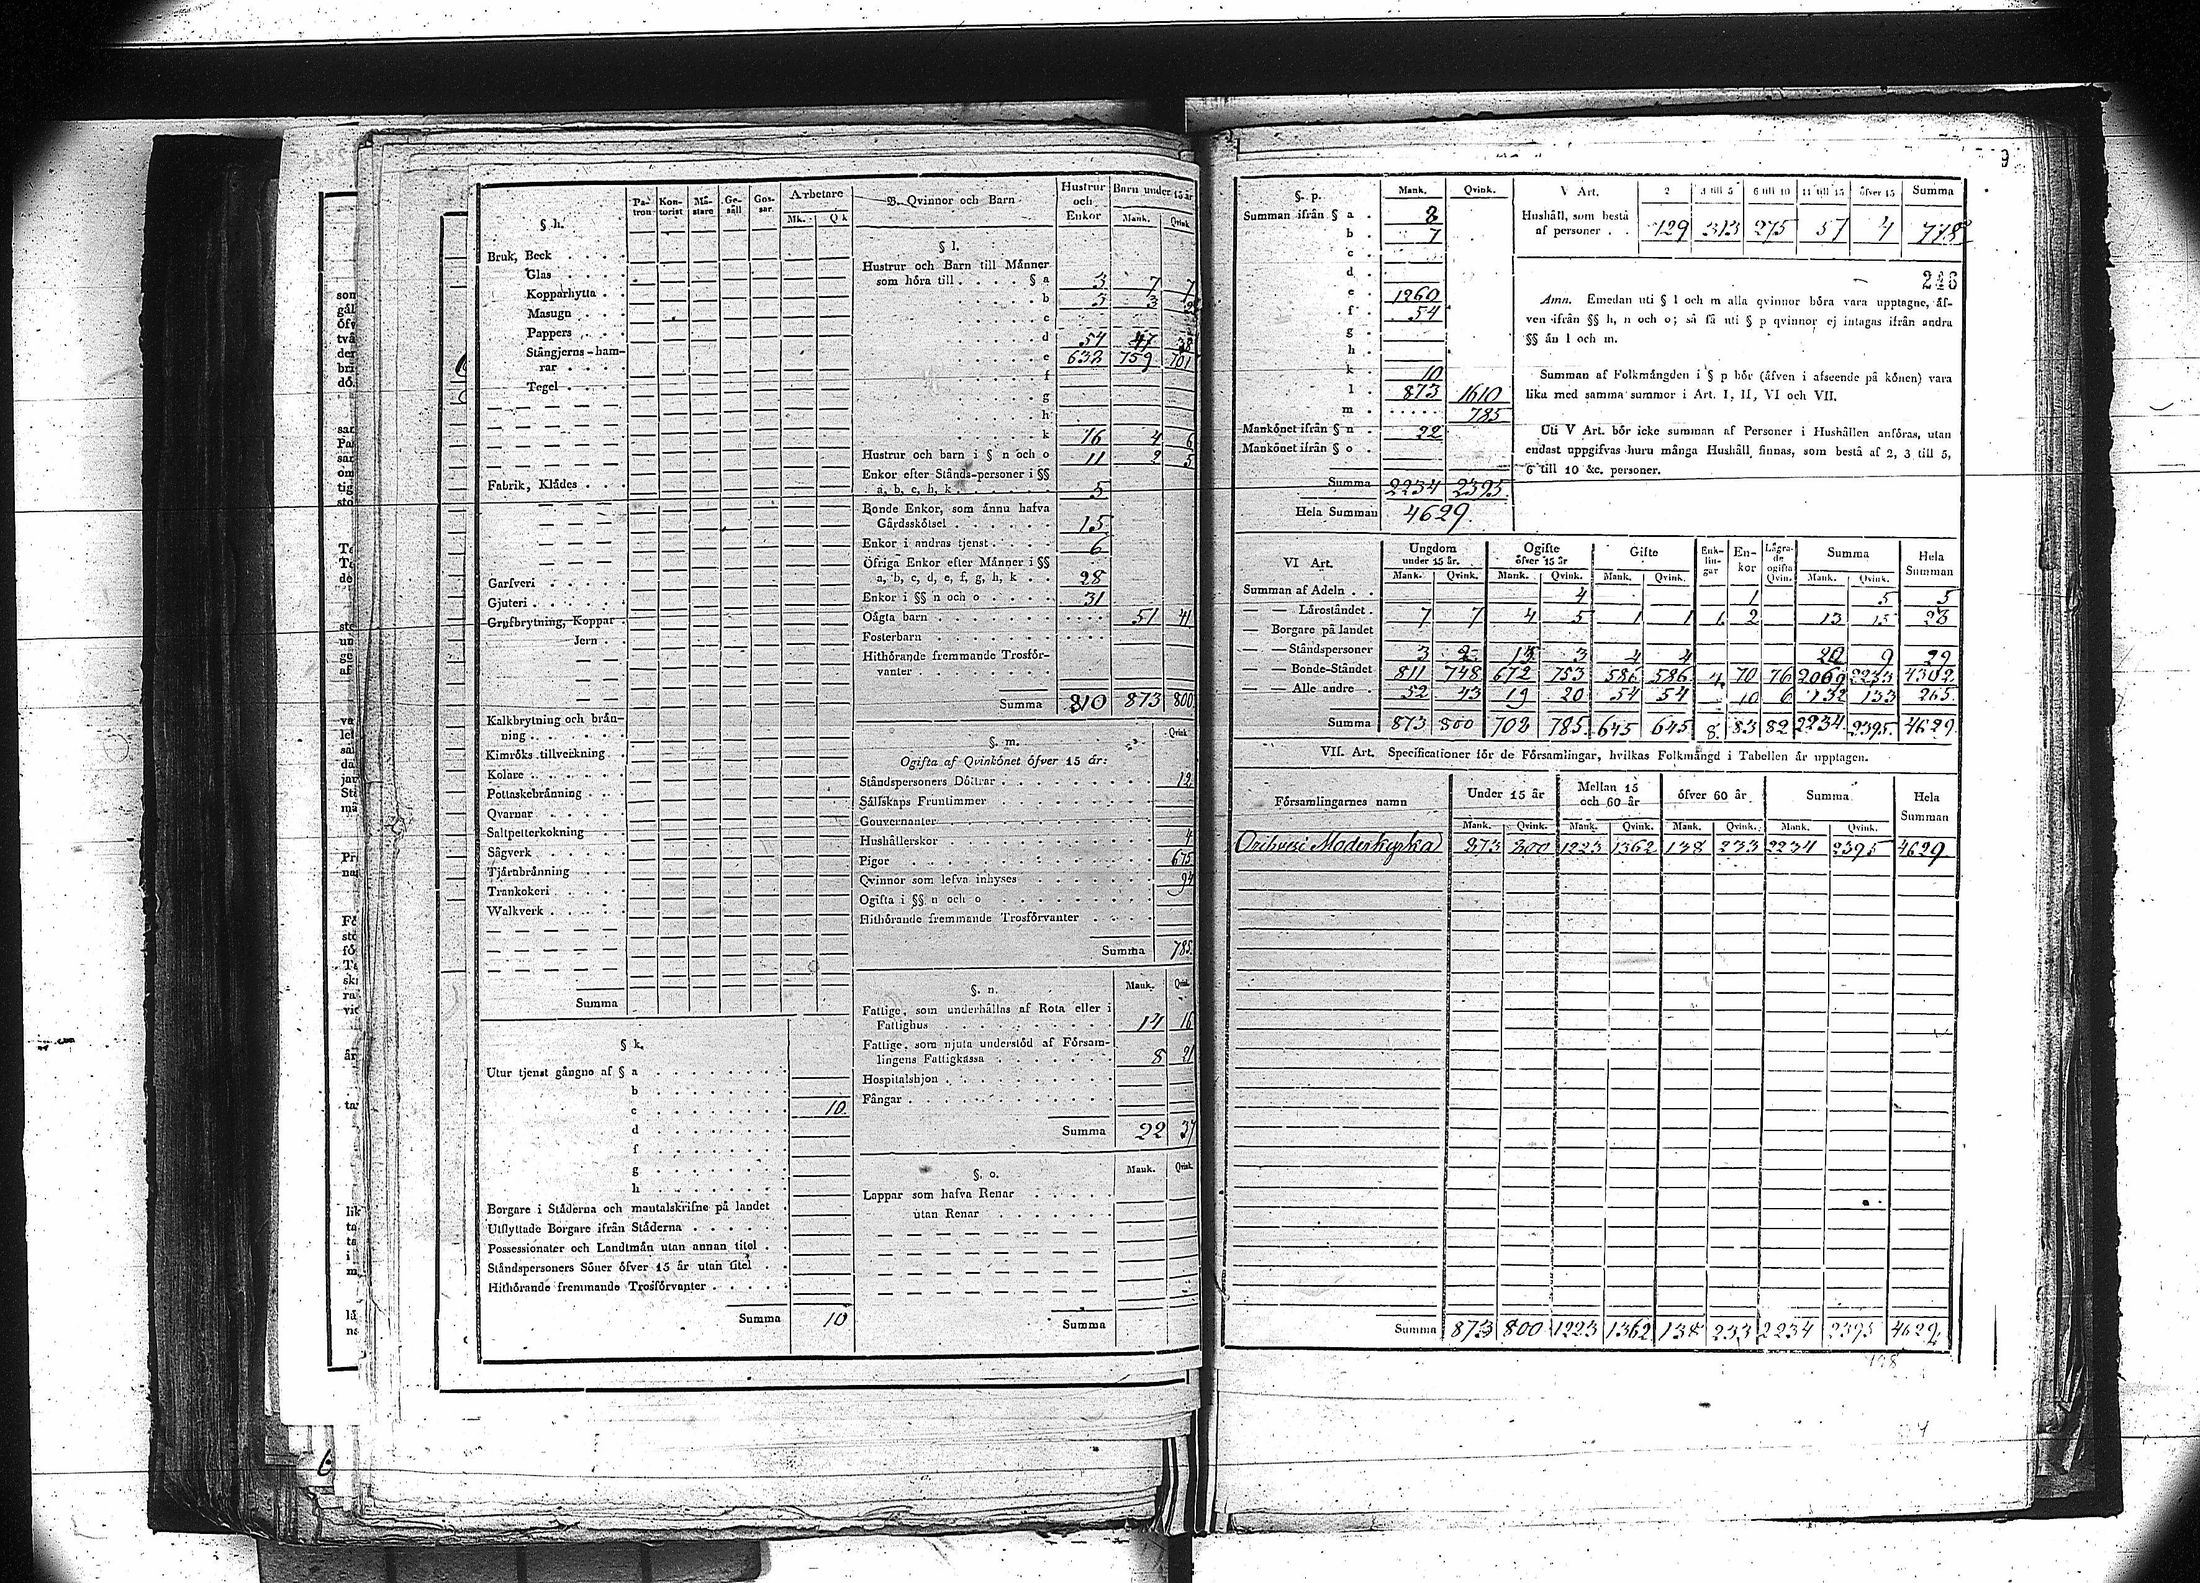 § h.
Pa-tron Kon-torist Må-stare Ge-säll Gos-sar Arbetare Mk. Qk
Bruk, Beck
Glas
Kopparhytta
Masugn
Pappers
Stångjerns-ham-
rar
Tegel
Fabrik, Klådes
Garfveri
Gjuteri
Grufbrytning, Koppar
Jern
Kalkbrytning och brån-
ning
Kimröks tillverkning
Kolare
Pottaskebrånning
Qvarnar
Saltpetterkokning
Sågverk
Tjårubrånning
Trankokeri
Walkverk
Summa
§ k.
Utur tjenst gångno af § a
b
c 10
d
f
g
h
Borgare i Ståderna och mantalskrifne på landet
Utflyttade Borgare ifrån Ståderna
Possessionater och Landtmån utan annan titel
Ståndspersoners Söner öfver 15 år utan titel
Hithörande fremmande Trosförvanter
Summa 10
B. Qvinnor och Barn Hustrur och Enkor Barn under 15 år Mank. Qvink.
§ l.
Hustrur och Barn till Männer
som höra till § a 3 7 7
b 5 3
c
d 54 47 38
e 632 759 701
f
g
h
k 16 4 6
Hustrur och barn i § n och o 11 2 5
Enkor efter Stånds-personer i §§
a, b, c, h, k 5
Bonde Enkor, som ånnu hafva
Gårdsskötsel 15
Enkor i andras tjenst 6
Öfriga Enkor efter Männer i §§
a, b, c, d, e, f, g, h, k 28
Enkor i §§ n och o 31
Oågta barn 51 41
Fosterbarn
Hithörande fremmande Trosför-
vanter
Summa 810 873 800
§. m. Qvink
Ogifta af Qvinkönet öfver 15 år:
Ståndspersoners Döttrar 12
Sällskaps Fruntimmer
Gouvernanter
Hushållerskor 4
Pigor 675
Qvinnor som lefva inhyses 94
Ogifta i §§ n och o
Hithörande fremmande Trosförvanter
Summa 785
§. n. Mank. Qvink.
Fattige, som underhållas af Rota eller i
Fattighus 14 16
Fattige, som njuta understöd af Försam-
lingens Fattigkassa 8 21
Hospitalshjon
Fångar
Summa 22 37
§. o. Mank. Qvink.
Lappar som hafva Renar
utan Renar
Summa
9
§. p. Mank. Qvink.
Summan ifrån § a 8
b 7
c
d
e 1260
f 54
g
h
k 10
l 873 1610
m 785
Mankönet ifrån § n 22
Mankönet ifrån § o
Summa 2234 2395
Hela Summan 4629
V Art. 2 3 till 5 6 till 10 11 till 15 öfver 15 Summa
Hushåll, som bestå
af personer 129 313 275 57 4 778
246
Anm. Emedan uti § l och m alla qvinnor böra vara upptagne, åf-
ven ifrån §§ h, n och o; så få uti § p qvinnor ej intagas ifrån andra
§§ ån l och m.
Summan af Folkmångden i § p bör (åfven i afseende på könen) vara
lika med samma summor i Art. I, II, VI och VII.
Uti V Art. bör icke summan af Personer i Hushållen anföras, utan
endast uppgifvas huru många Hushåll finnas, som bestå af 2, 3 till 5,
6 till 10 &c. personer.
VI Art. Ungdom under 15 år. Ogifte öfver 15 år Gifte Enk-lin-gar En-kor Lägra-de ogifta Qvin. Summa Hela Summan
Mank. Qvink. Mank. Qvink. Mank. Qvink. Mank. Qvink.
Summan af Adeln 4 1 5 5
— — Låroståndet 7 7 4 5 1 1 1 2 13 15 28
— Borgare på landet
— — Ståndspersoner 3 2 13 3 4 4 20 9 29
— — Bonde-Ståndet 811 748 672 753 586 586 70 76 2069 2233 4302
— — Alle andre 52 43 19 20 54 54 10 6 132 133 265
Summa 873 800 702 785 645 645 8 83 82 2234 2395 4629
VII. Art. Specificationer för de Församlingar, hvilkas Folkmångd i Tabellen år upptagen.
Församlingarnes namn Under 15 år Mellan 15 och 60 år öfver 60 år Summa Hela Summan
Mank. Qvink. Mank. Qvink. Mank. Qvink. Mank. Qvink.
Orihvesi Moderkyrka 873 800 1223 1362 138 233 2234 2395 4629
Summa 873 800 1223 1362 138 233 2234 2395 4629